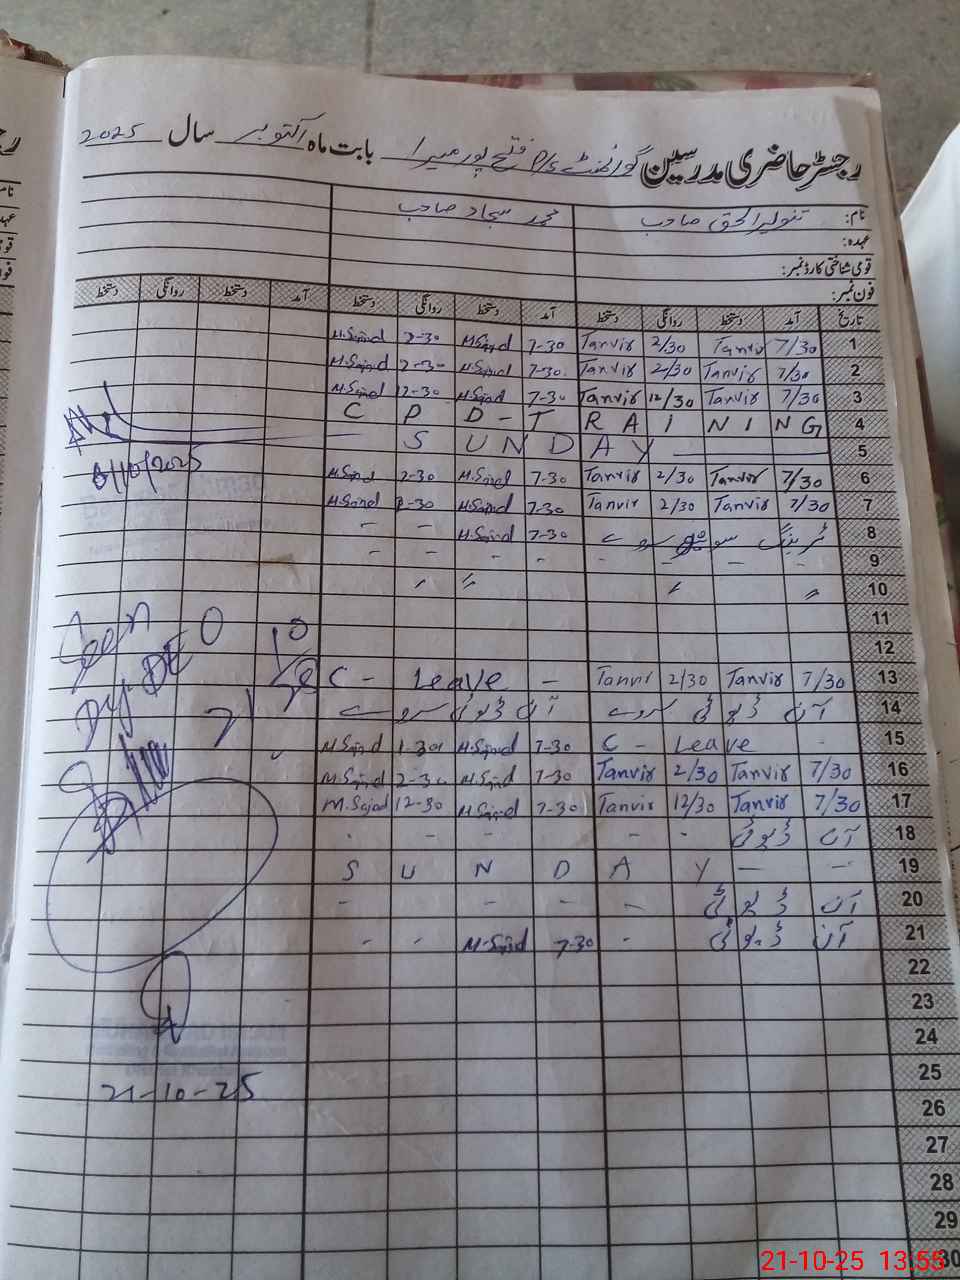 رجسٹر حاضری مدرسین گورنمنٹ P/S فتح پور میرا بابت ماہ اکتوبر سال 2025
نام: تنویرالحق صاحب محمد سجاد صاحب
عہدہ:
قومی شناختی کارڈ نمبر:
فون نمبر:
تاریخ آمد دستخط روانگی دستخط آمد دستخط روانگی دستخط آمد دستخط روانگی دستخط
1 7/30 Tanvir 2/30 Tanvir 7-30 M.Sajjad 2-30 M.Sajjad
2 7/30 Tanvir 2/30 Tanvir 7-30 M.Sajjad 2-30 M.Sajjad
3 7/30 Tanvir 12/30 Tanvir 7-30 M.Sajjad 12-30 M.Sajjad
4 C P D - T R A I N I N G
5 S U N D A Y
6 7/30 Tanvir 2/30 Tanvir 7-30 M.Sajjad 2-30 M.Sajjad
7 7/30 Tanvir 2/30 Tanvir 7-30 M.Sajjad 2-30 M.Sajjad
8/10/2025
8 ٹریننگ سروے 7-30 M.Sajjad - -
9 - - - - - - - -
10 〃 〃 〃 〃
11
12
Seen
Dy: DEO
13 7/30 Tanvir 2/30 Tanvir C - Leave -
14 آن ڈیوٹی سروے آن ڈیوٹی سروے
15 C - Leave - 7-30 M.Sajjad 1-30 M.Sajjad
16 7/30 Tanvir 2/30 Tanvir 7-30 M.Sajjad 2-30 M.Sajjad
17 7/30 Tanvir 12/30 Tanvir 7-30 M.Sajjad 12-30 M.Sajad
18 آن ڈیوٹی - - - - - -
19 S U N D A Y - -
20 آن ڈیوٹی - - - -
21 آن ڈیوٹی - 7-30 M-Sajjad - -
22
23
24
25
21-10-25
26
27
28
29
30
21-10-25 13:55